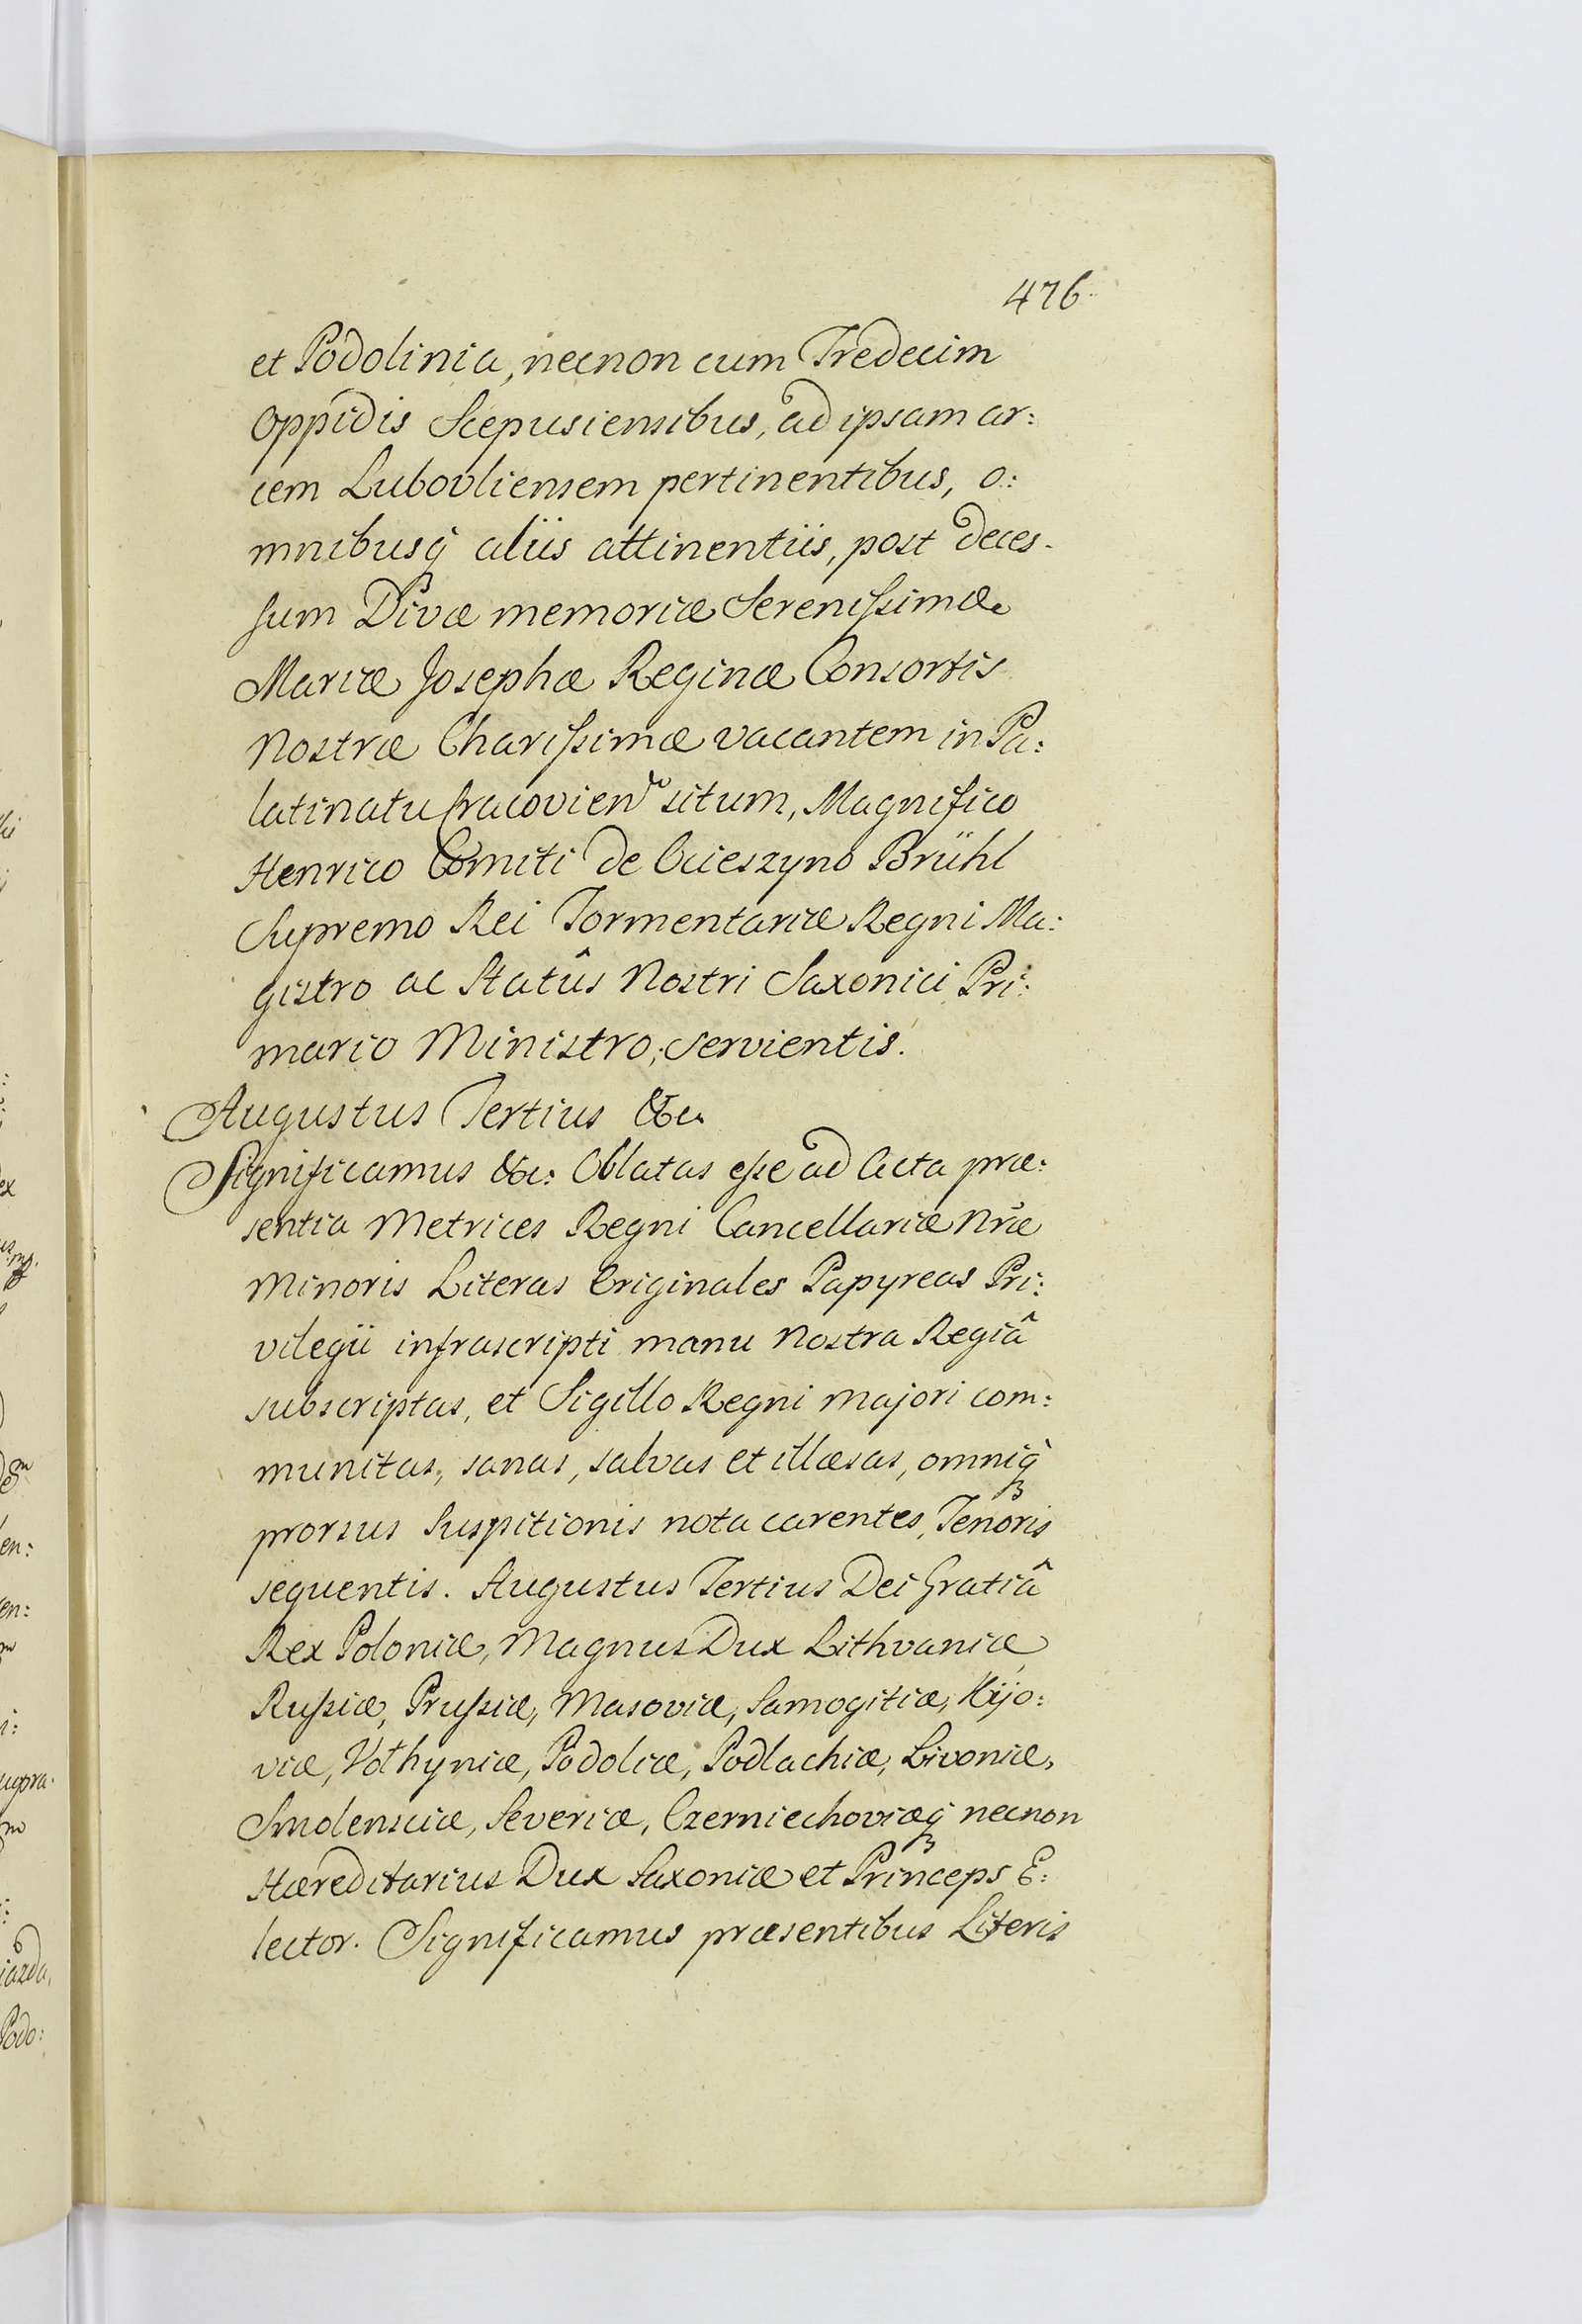 476
et Podolinia, necnon cum Tredecim
Oppidis Scepusiensibus, ad ipsam ar:
cem Lubovliensem pertinentibus, o:
mnibusq̃ aliis attinentiis, post deces-
sum Divæ memoriæ Serenissimæ
Mariæ Josephæ Reginæ Consortis
Nostræ Charissimæ vacantem in Pa:
latinatu Cracovien situm, Magnifico
Henrico Comiti de Ocieszyno Brühl
Supremo Rei Tormentariæ Regni Ma:
gistro ac Statûs Nostri Saxonici Pri:
mario Ministro, servientis.
Augustus Tertius &c.
Significamus &c: Oblatas esse ad Acta præ:
sentia Metrices Regni Cancellariæ Nræ
Minoris Literas Originales Papyreas Pri:
vilegii infrascripti manu Nostra Regiâ
subscriptas, et Sigillo Regni majori com:
munitas, sanas, salvas et illæsas, omniq̃
prorsus suspitionis nota carentes, Tenoris
sequentis. Augustus Tertius Dei Gratiâ
Rex Poloniæ, Magnus Dux Lithvaniæ
Russiæ, Prussiæ, Masoviæ, Samogitiæ, Kijo:
viæ, Volhyniæ, Podoliæ, Podlachiæ, Livoniæ,
Smolensciæ, Severiæ, Czerniechoviæq̃ necnon
Hæreditarius Dux Saxoniæ et Princeps E:
lector. Significamus præsentibus Literis